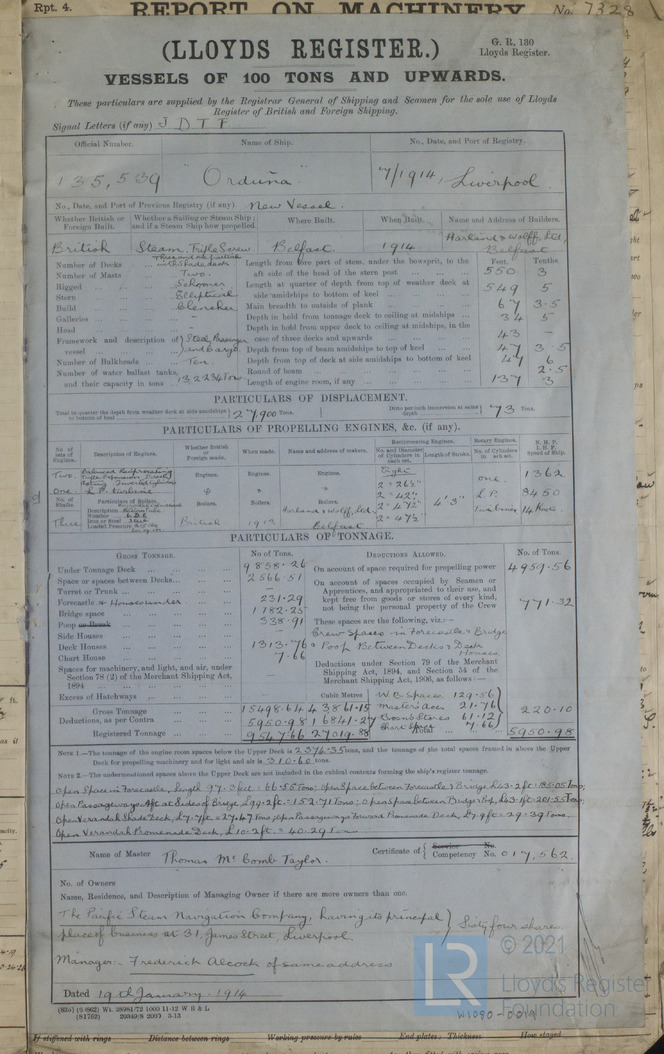 Rpt. 4. REPORT ON MACHINERY No. 7328
(LLOYDS REGISTER.)
G. R. 130
Lloyds Register.
VESSELS OF 100 TONS AND UPWARDS.
These particulars are supplied by the Registrar General of Shipping and Seamen for the sole use of Lloyds
Register of British and Foreign Shipping.
Signal Letters (if any) J D T F
Official Number. Name of Ship. No., Date, and Port of Registry.
135,539 "Orduña" 7/1914, Liverpool
No., Date, and Port of Previous Registry (if any). New Vessel.
Whether British or Foreign Built. Whether a Sailing or Steam Ship; and if a Steam Ship how propelled Where Built. When Built. Name and Address of Builders.
British Steam, Triple Screw Belfast 1914 Harland & Wolff, Ltd, Belfast
Feet. Tenths
Number of Decks
Number of Masts Two.
Rigged Schooner
Stern Elliptical
Build Clencher
Galleries -
Head -
Framework and description of vessel Steel, Passenger and Cargo
Number of Bulkheads Ten
Number of water ballast tanks, and their capacity in tons 13 2234 Tons
Length from fore part of stem, under the bowsprit, to the aft side of the head of the stern post 550 3
Length at quarter of depth from top of weather deck at side amidships to bottom of keel 549 5
Main breadth to outside of plank 67 3·5
Depth in hold from tonnage deck to ceiling at midships 34 5
Depth in hold from upper deck to ceiling at midships, in the case of three decks and upwards 43 -
Depth from top of beam amidships to top of keel 47 3·5
Depth from top of deck at side amidships to bottom of keel 47 6
Round of beam 2·5
Length of engine room, if any 137 3
PARTICULARS OF DISPLACEMENT.
Total to quarter the depth from weather deck at side amidships to bottom of keel 27,900 Tons. Ditto per inch immersion at same depth 73 Tons.
PARTICULARS OF PROPELLING ENGINES, &c. (if any).
No. of sets of Engines. Description of Engines. Whether British or Foreign made. When made. Name and address of makers. Reciprocating Engines. Rotary Engines. N. H. P. I. H. P. Speed of Ship.
No. and Diameter of Cylinders in each set. Length of Stroke. No. of Cylinders in each set.
Two. Engines. Engines. Engines. Eight one. 1362
One L.P. Turbine 2 = 26½" L.P. 8450
No. of Shafts Particulars of Boilers. Boilers. Boilers. Boilers. 2 = 42" 4' 3" Turbines 14 Knots
Three British Harland & Wolff, Ltd. Belfast 2 = 47½"
2 = 47½"
PARTICULARS OF TONNAGE.
GROSS TONNAGE. No of Tons. DEDUCTIONS ALLOWED. No. of Tons.
Under Tonnage Deck 9858·26
Space or spaces between Decks 2566·51
Turret or Trunk -
Forecastle & Houses under 231·29
Bridge space 1182·25
Poop or Break 338·91
Side Houses -
Deck Houses 1313·76
Chart House 7·66
Spaces for machinery, and light, and air, under Section 78 (2) of the Merchant Shipping Act, 1894
Excess of Hatchways Cubic Metres
Gross Tonnage 15498·64 43861·15
Deductions, as per Contra 5950·98 16841·27
Registered Tonnage 9547·66 27019·88
On account of space required for propelling power 4959·56
On account of spaces occupied by Seamen or Apprentices, and appropriated to their use, and kept free from goods or stores of every kind, not being the personal property of the Crew 771·32
These spaces are the following, viz:—
Crew Spaces in Forecastle & Bridge
& Poop Between Decks & Deck Houses.
Deductions under Section 79 of the Merchant Shipping Act, 1894, and Section 54 of the Merchant Shipping Act, 1906, as follows:—
W.B. Spaces 129·56
Master's Acc. 21·76
Boatn's Stores 61·12
Chart Space 7·66
220·10
Total 5950·98
NOTE 1.—The tonnage of the engine room spaces below the Upper Deck is 2374·35 tons, and the tonnage of the total spaces framed in above the Upper
Deck for propelling machinery and for light and air is 310·60 tons.
NOTE 2.—The undermentioned spaces above the Upper Deck are not included in the cubical contents forming the ship's register tonnage.
Open Space in Forecastle, length 97·3 feet = 66·55 Tons; Open Space between Forecastle & Bridge, L 43·2 ft = 185·05 Tons;
Open Passageways Aft at Sides of Bridge, L 99·2 ft = 152·71 Tons; Open Space between Bridge & Poop, L 43·1 ft 201·55 Tons;
Open Verandah Shade Deck, L 7·7 ft = 27·47 Tons; Open Passageways Forward Promenade Deck, L 7·9 ft = 29·39 Tons.
Open Verandah Promenade Deck, L 10·2 ft = 40·29 Tons
Name of Master Thomas McComb Taylor. Certificate of Service Competency No. 017,562.
No. of Owners
Name, Residence, and Description of Managing Owner if there are more owners than one.
The Pacific Steam Navigation Company, having its principal
place of business at 31, James Street, Liverpool } Sixty four shares
Manager:- Frederick Alcock of same address
Dated 19th January 1914
(82b) (94862) Wt. 28981/72 1000 11-12 W B & L
(81762) 29349/8 2000 3-13
W1090-0019
LR © 2021
Lloyds Register
Foundation
If stiffened with rings Distance between rings Working pressure by rules End plates: Thickness How stayed